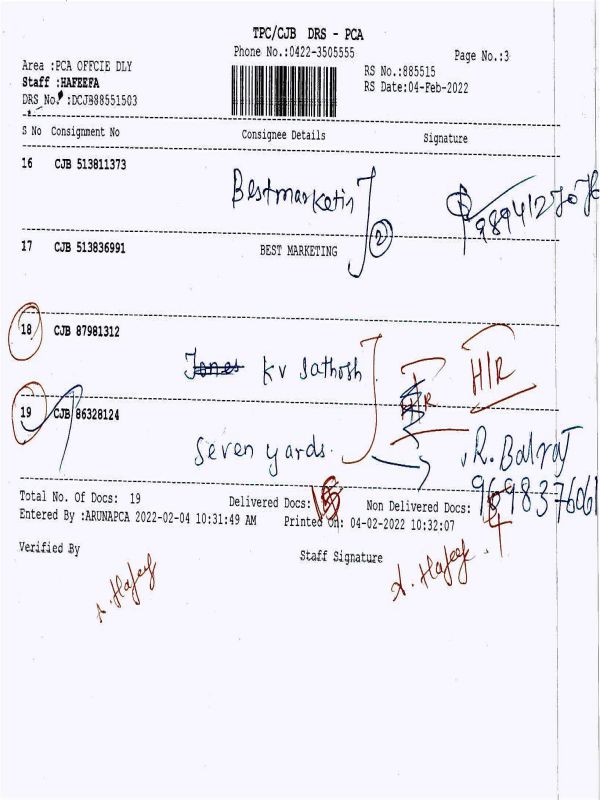 TPC/CJB DRS - PCA
Phone No.:0422-3505555
Page No.:3
Area :PCA OFFCIE DLY
RS No.:885515
Staff :HAFEEFA
RS Date:04-Feb-2022
DRS No. :DCJB88551503
S No Consignment No Consignee Details Signature
16 CJB 513811373
Bestmarketin
2
17 CJB 513836991 BEST MARKETING
18 CJB 87981312
Jones KV Sathosh H/R H/R
19 CJB 86328124
Seven yards. R. Balraj
9698376061
Total No. Of Docs: 19 Delivered Docs: Non Delivered Docs: 4
Entered By :ARUNAPCA 2022-02-04 10:31:49 AM Printed On: 04-02-2022 10:32:07
Verified By Staff Signature
A. Hafeef A. Hafeef